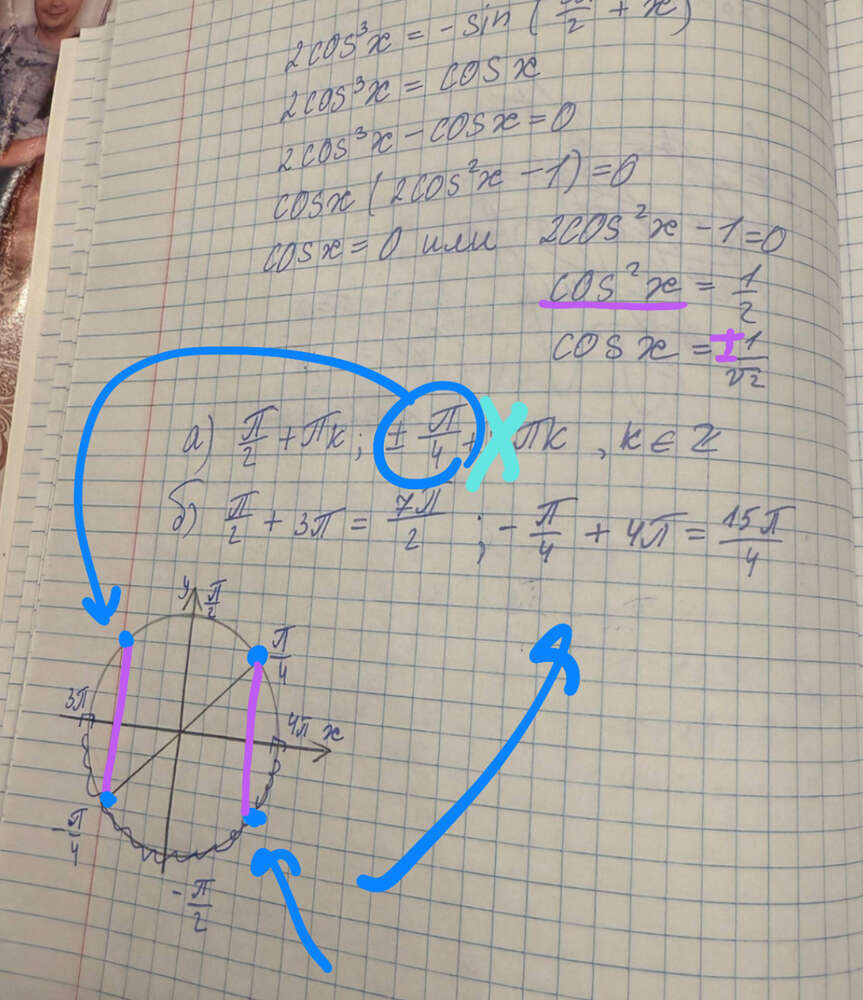 2cos³x = -sin ( /2 + x)
2cos³x = cosx
2cos³x - cosx = 0
cosx (2cos²x - 1) = 0
cosx = 0 или 2cos²x - 1 = 0
cos²x = 1/2
cosx = ± 1/√2
а) π/2 + πk; ± π/4 + πk, k ∈ Z
б) π/2 + 3π = 7π/2 ; - π/4 + 4π = 15π/4
y π/2
π/4
3π 4π x
- π/4
- π/2